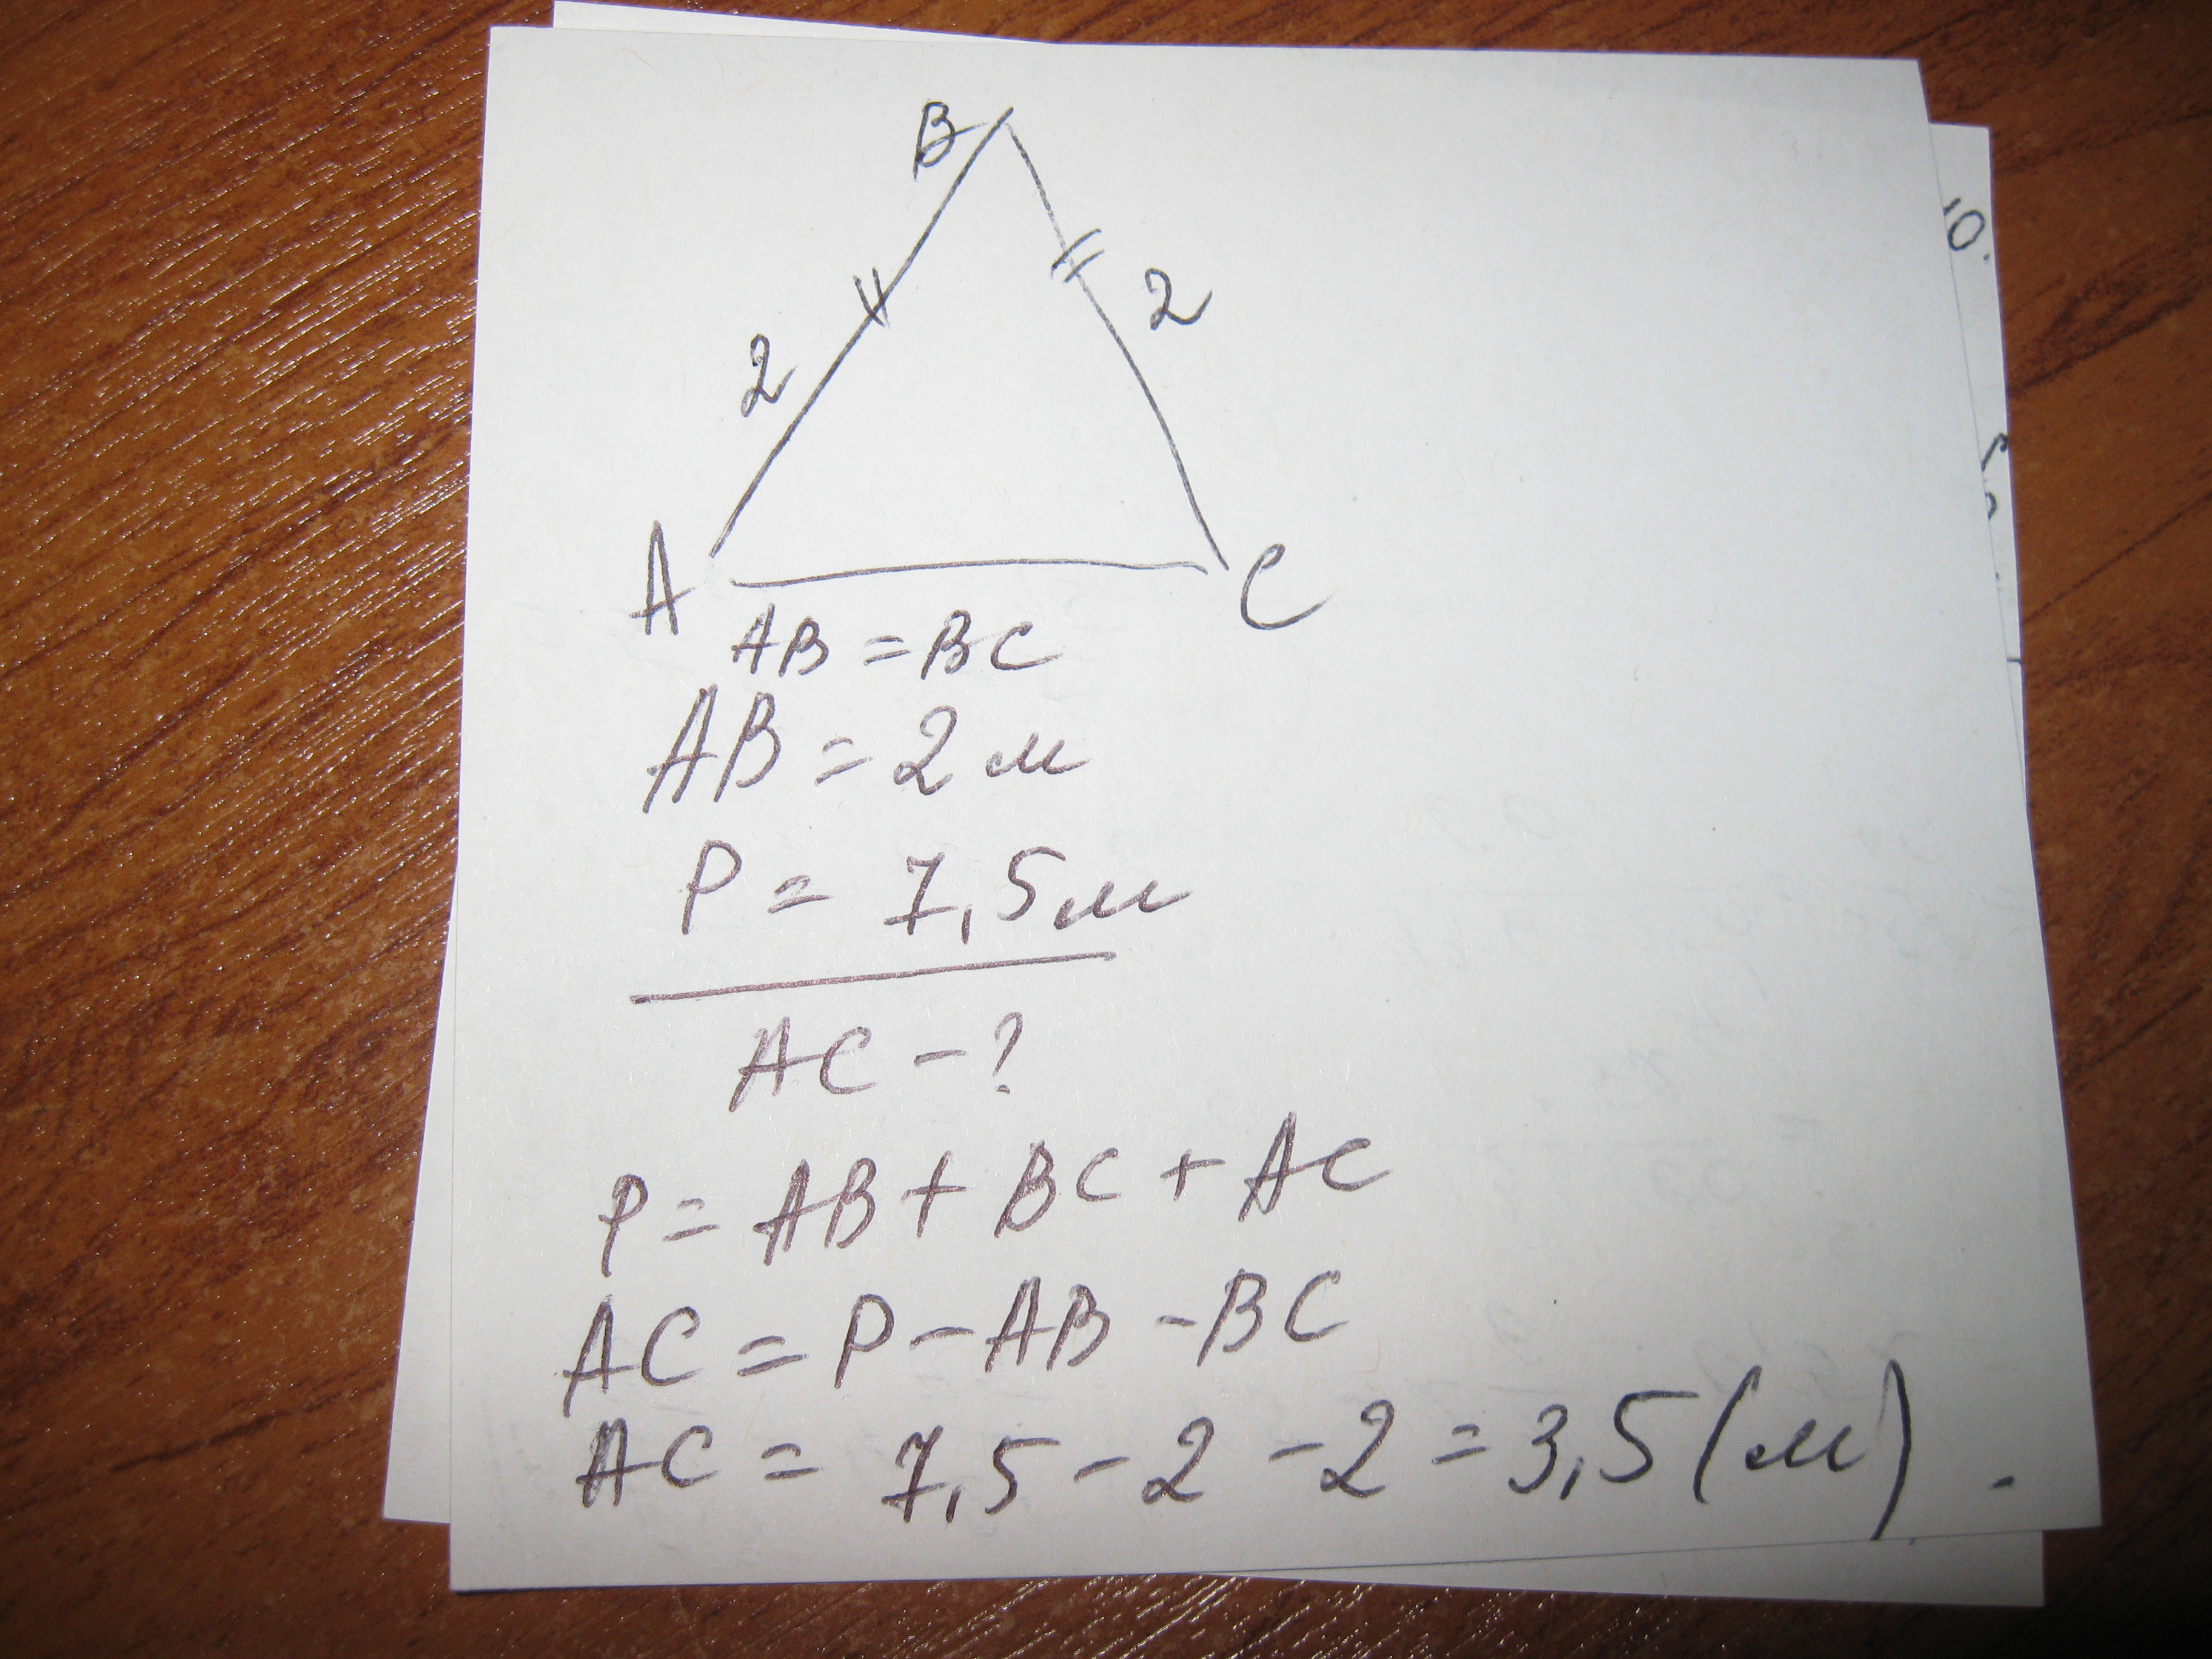 B
2
2
A
C
AB = BC
AB = 2 м
P = 7,5 м
AC - ?
P = AB + BC + AC
AC = P - AB - BC
AC = 7,5 - 2 - 2 = 3,5 (м).
10.